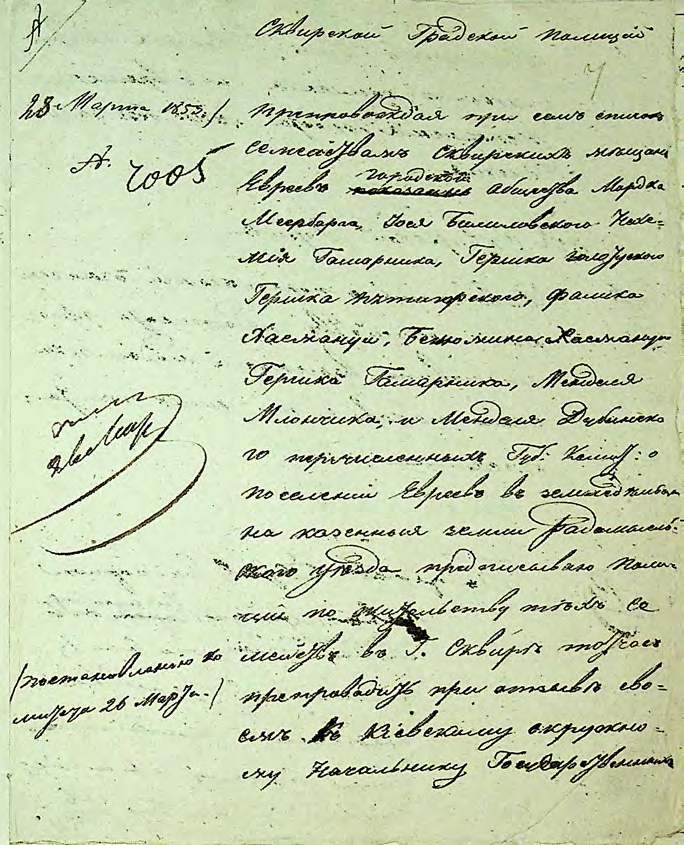 А
Сквирской Градской Полиции
7
28 Марта 1853
А.
2005
препровождая при семъ списокъ
семействамъ Сквирскихъ мещанъ
Евреевъ городской общества Мордка
Меербарга, Іося Билиловского Нахе-
мія Гамарника, Гершка
Гершка Фалика
Хасмануй, Бенюмина Хасмануй
Гершка Гамарника, Менделя
Млончика, и Менделя Дубинско
го перечисленныхъ Губ: Комис: о
поселеніи Евреевъ въ
на казенныя земли Радомысль-
ского уезда предписываю Поли-
ции по жительству техъ се
мействъ въ Г. Сквире тотчасъ
препроводить при отзыве сво-
емъ къ Кіевскому окружно-
му Начальнику Государственныхъ
(постановленію ко
митета 26 Марта.)